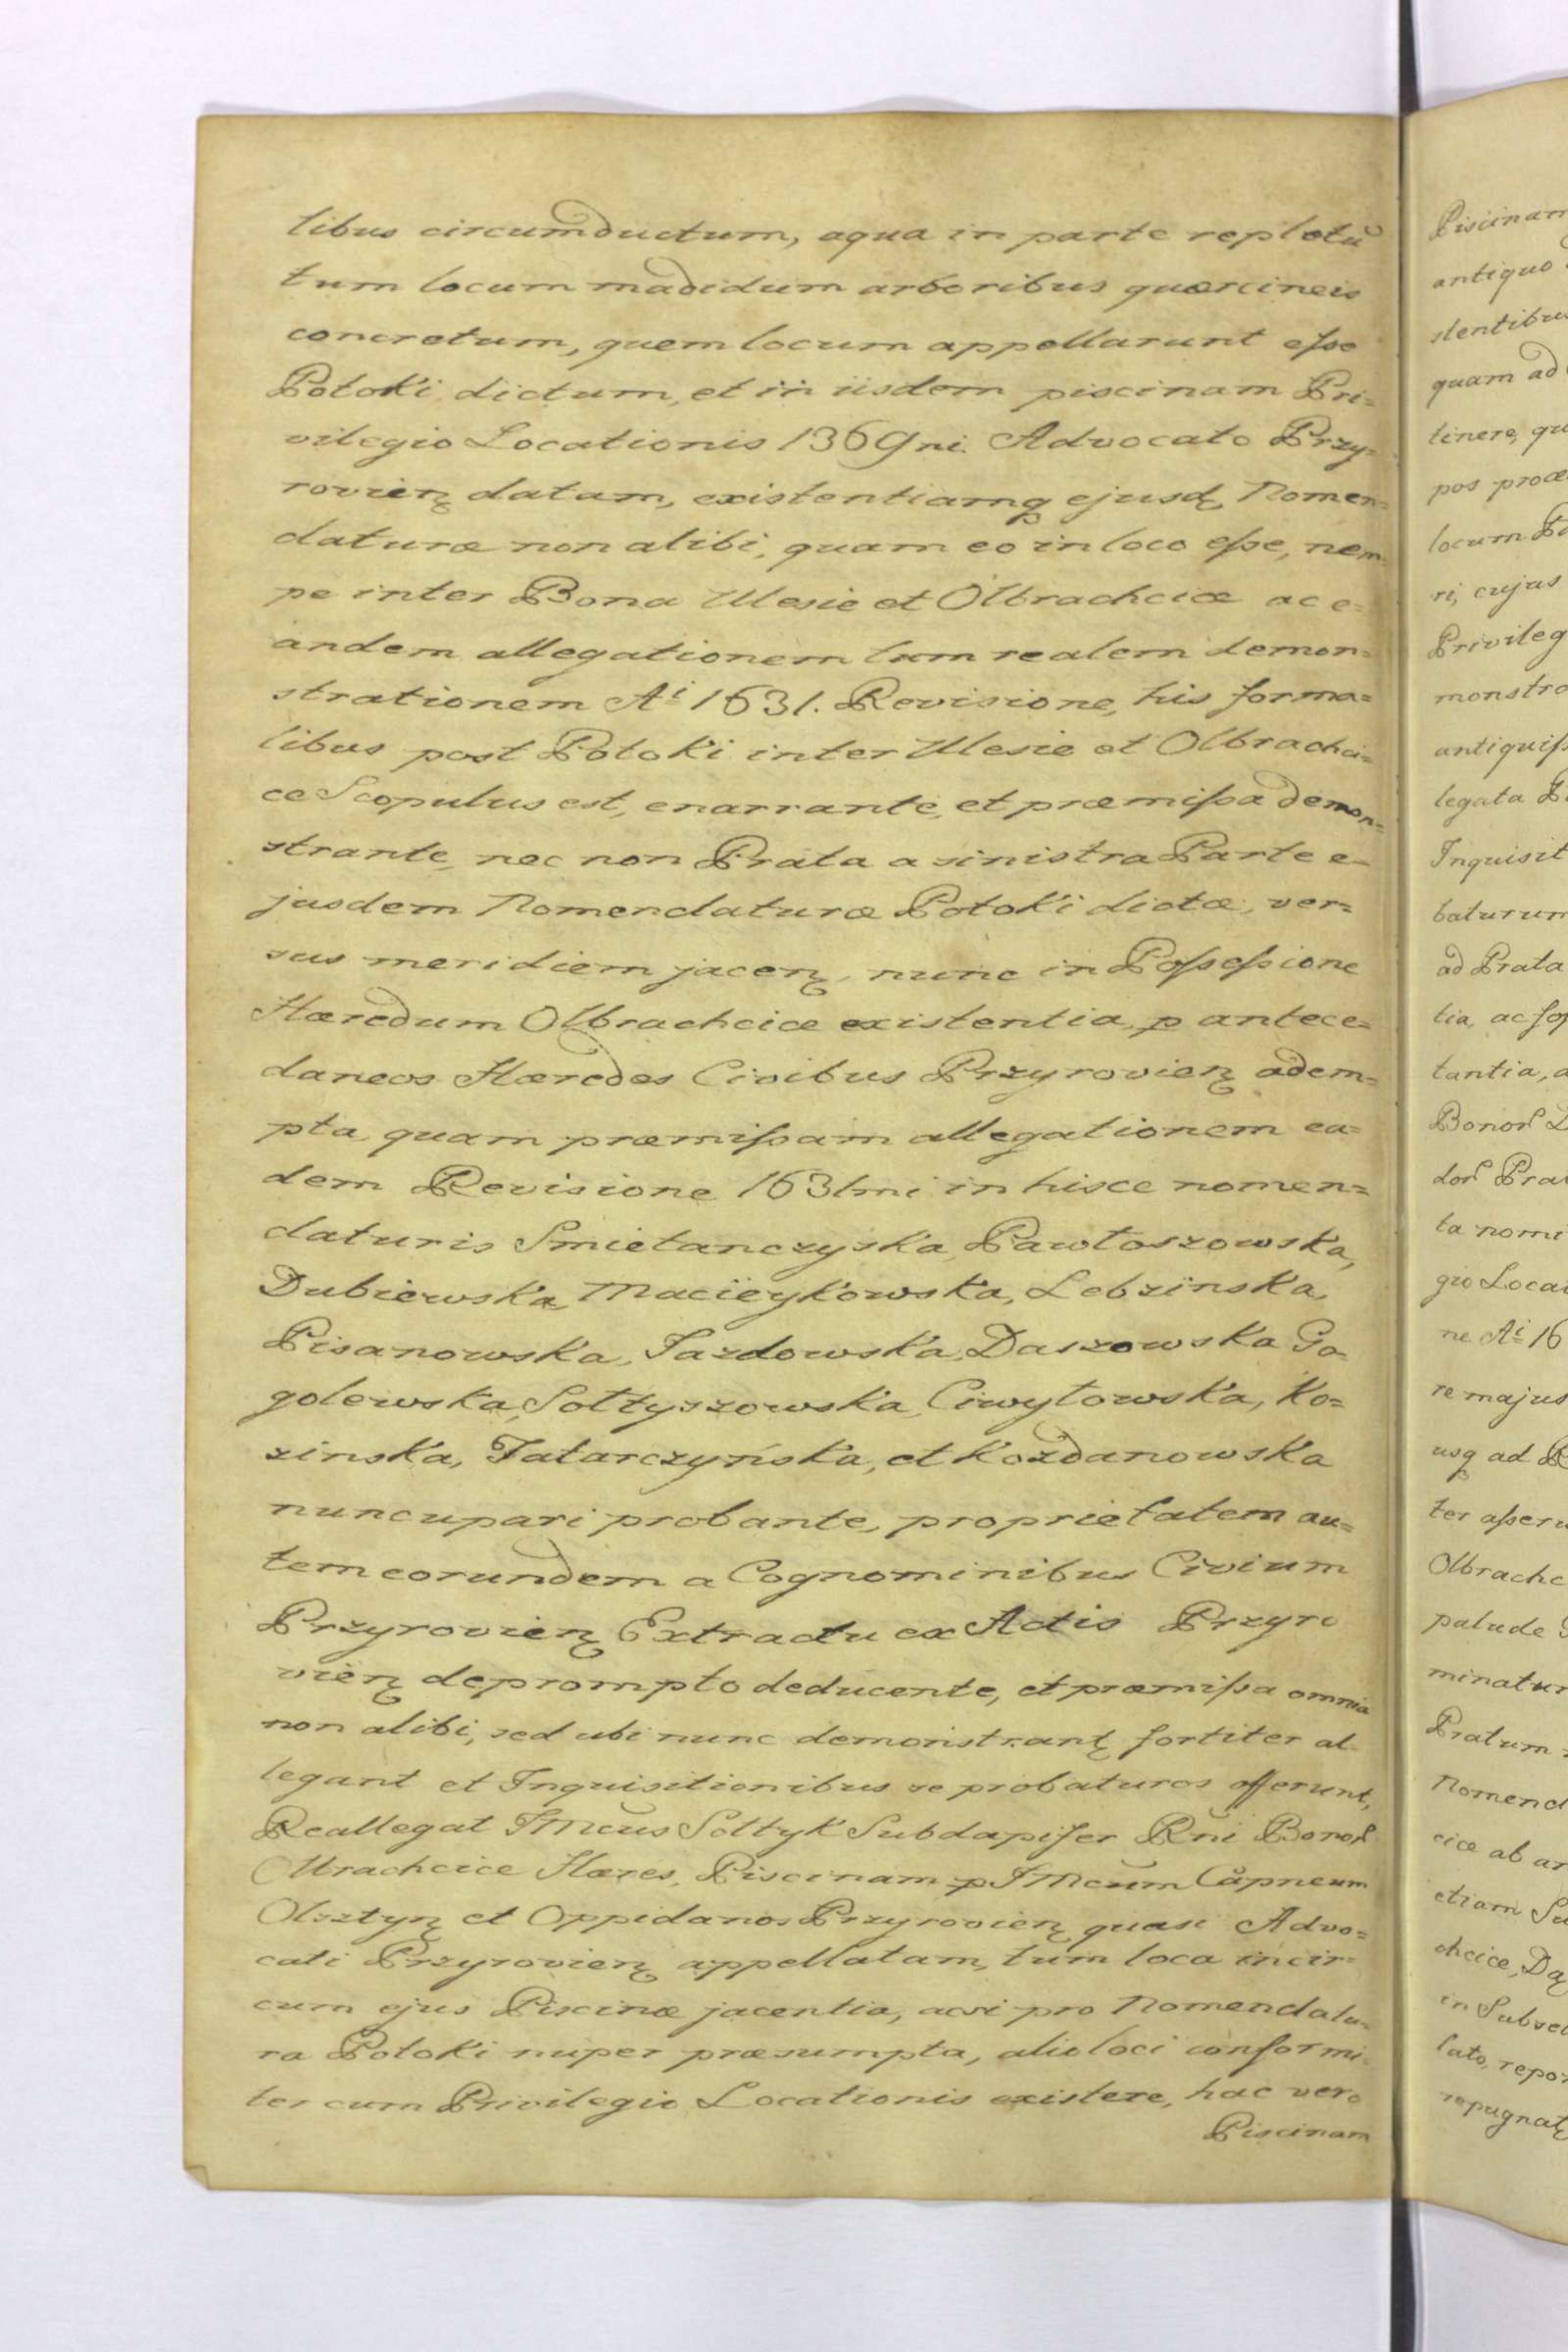 libus circumductum, aqua in parte repletū
tum locum madidum arboribus quærcineis
concretum, quem locum appellarunt eſse
Potoki dictum, et in iisdem piscinam Pri=
vilegio Locationis 1369ni. Advocato Przy=
rovień datam, existentiamq ejusd Nomen=
claturæ non alibi, quam eo in loco eſse, nem=
pe inter Bona Ulesie et Olbrachcice ac e=
andem allegationem tum realem demon=
strationem Aⁱ 1631. Revisione, his forma=
libus post Potoki inter Ulesie et Olbrachci=
ce Scopulus est, enarrante, et præmiſsa demon=
strante, nec non Prata a sinistra Parte e=
jusdem Nomenclaturæ Potoki dictæ, ver=
sus meridiem jacen, nunc in Poſseſsione
Hæredum Olbrachcice existentia, p antece=
daneos Hæredes Civibus Przyrovien adem=
pta, quam præmiſsam allegationem ea=
dem Revisione 1631mi in hisce nomen=
claturis Smietanczyska, Pawłoszowska,
Dubiewska, Macieykowska, Lebzinska,
Pisanowska, Jazdowska, Daszowska Go=
golewska, Sołtyszowska, Ciwytowska, Ko=
zinska, Tatarczyńska, et Kozdanowska
nuncupari probante, proprietatem au=
tem eorundem a Cognominibus Civium
Przyrovien Extractu ex Actis Przyro
vien deprompto deducente, et præmiſsa omnia
non alibi, sed ubi nunc demonstrant fortiter al=
legant et Inquisitionibus se probaturos offerunt,
Reallegat JMcus Sołtyk Subdapifer Rni Bonor
Olbrachcice Hæres, Piscinam p JMcum Capneum
Olsztyn et Oppidanos Przyrovien quasi Advo=
cati Przyrovien appellatam, tum loca in cir=
cum ejus Piscinæ jacentia, acsi pro Nomenclatu=
ra Potoki nuper præsumpta, alio loci conformi=
ter cum Privilegio Locationis existere, hac vero
Piscinam
Piscinam
antiquo
stentibus
quam ad
tinere, qu
pos præ
locum
ri, cujus
Privileg
monstra
antiquiſs
legata
Inquisit
baturum
ad Prata
tia, ac
tantia, a
Bonor
dor Pra
ta nomi
gio Loca
ne Aⁱ 16
re majus
usq ad
ter aſser
Olbrachc
palude
minatur
Pratum
Nomencl
cice ab
etiam Su
chcice,
in Subse
lato, repo
repugnat